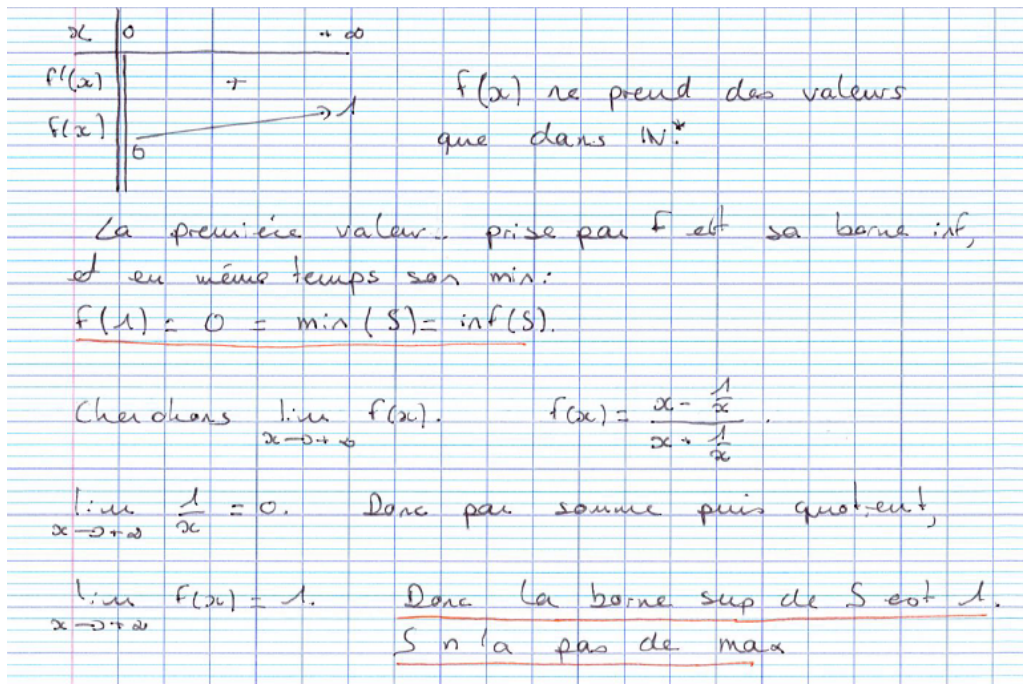 x 0 +∞
f'(x) +
f(x) 0 → 1
f(x) ne prend des valeurs
que dans ℕ*.
La première valeur prise par f est sa borne inf,
et en même temps son min:
f(1) = 0 = min(S) = inf(S).
Cherchons lim x→+∞ f(x). f(x) = (x - 1/x)/(x + 1/x).
lim x→+∞ 1/x = 0. Donc par somme puis quotient,
lim x→+∞ f(x) = 1. Donc la borne sup de S est 1.
S n'a pas de max